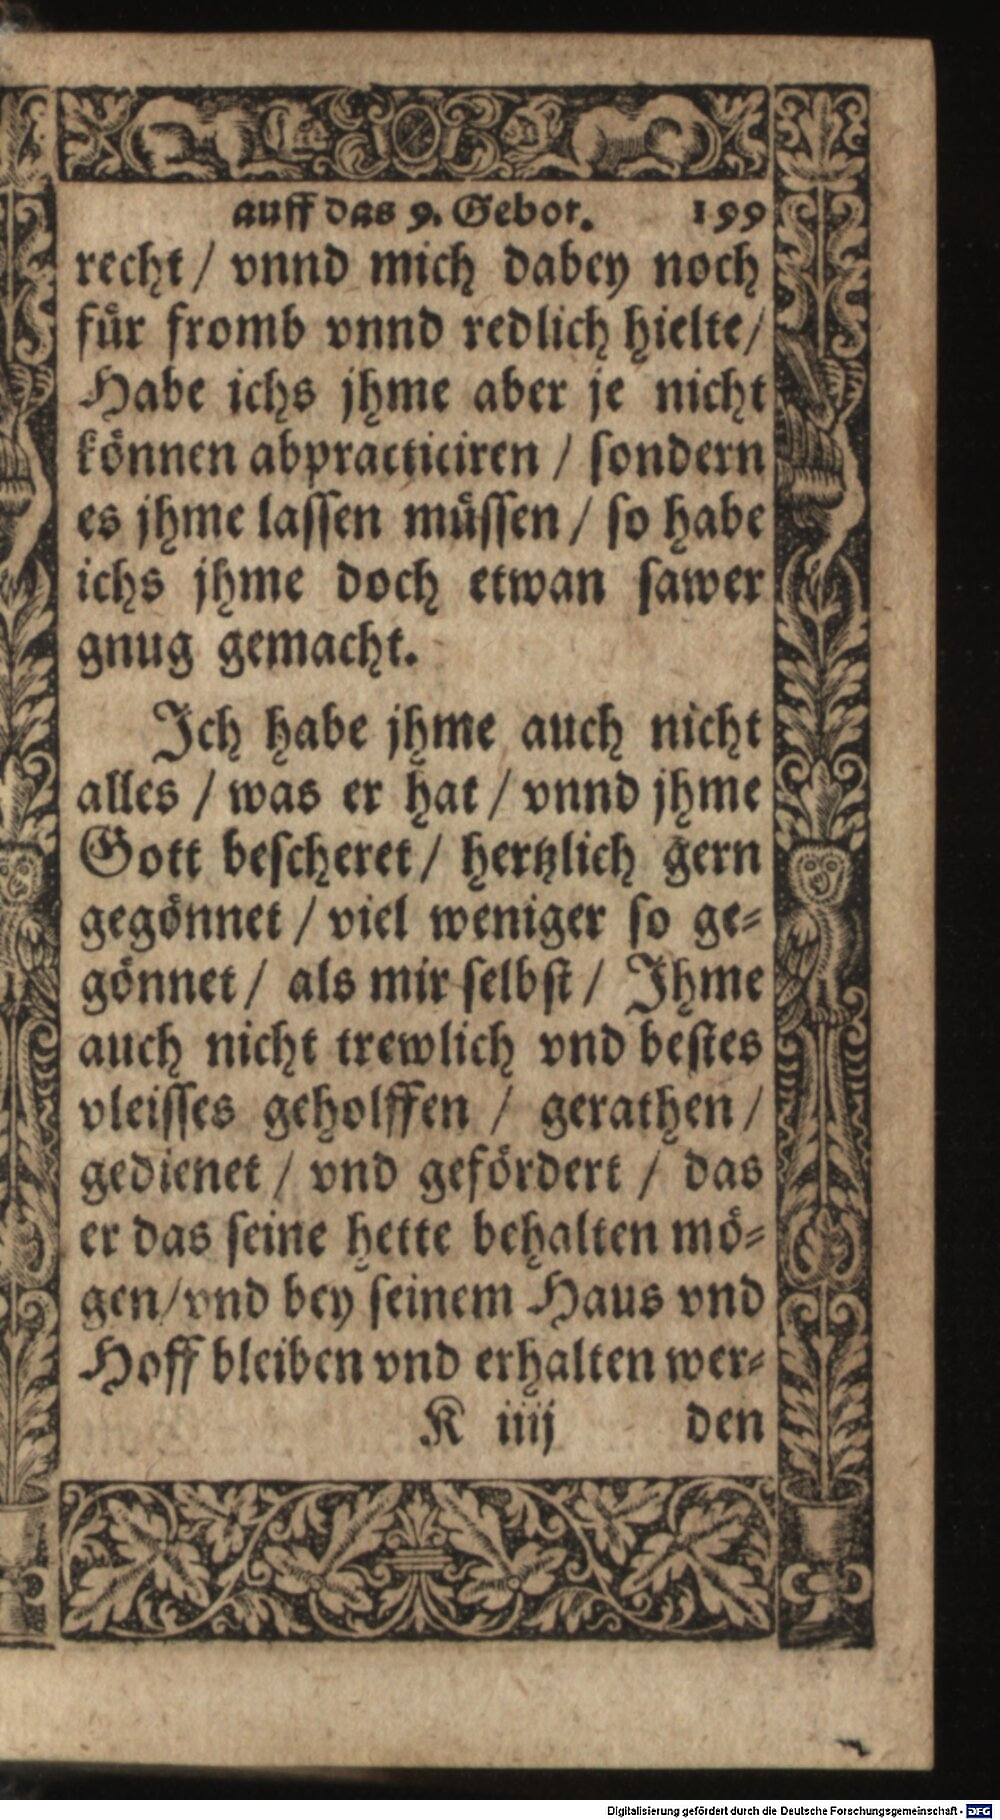 auff das 9. Gebot. 199
recht / vnnd mich dabey noch
fuͤr fromb vnnd redlich hielte /
Habe ichs jhme aber je nicht
koͤnnen abpracticiren / ſondern
es jhme laſſen muͤſſen / ſo habe
ichs jhme doch etwan ſawer
gnug gemacht.
Ich habe jhme auch nicht
alles / was er hat / vnnd jhme
Gott beſcheret / hertzlich gern
gegoͤnnet / viel weniger ſo ge⸗
goͤnnet / als mir ſelbſt / Ihme
auch nicht trewlich vnd beſtes
vleiſſes geholffen / gerathen /
gedienet / vnd gefoͤrdert / das
er das ſeine hette behalten moͤ⸗
gen / vnd bey ſeinem Haus vnd
Hoff bleiben vnd erhalten wer⸗
K iiij den
Digitalisierung gefördert durch die Deutsche Forschungsgemeinschaft - DFG